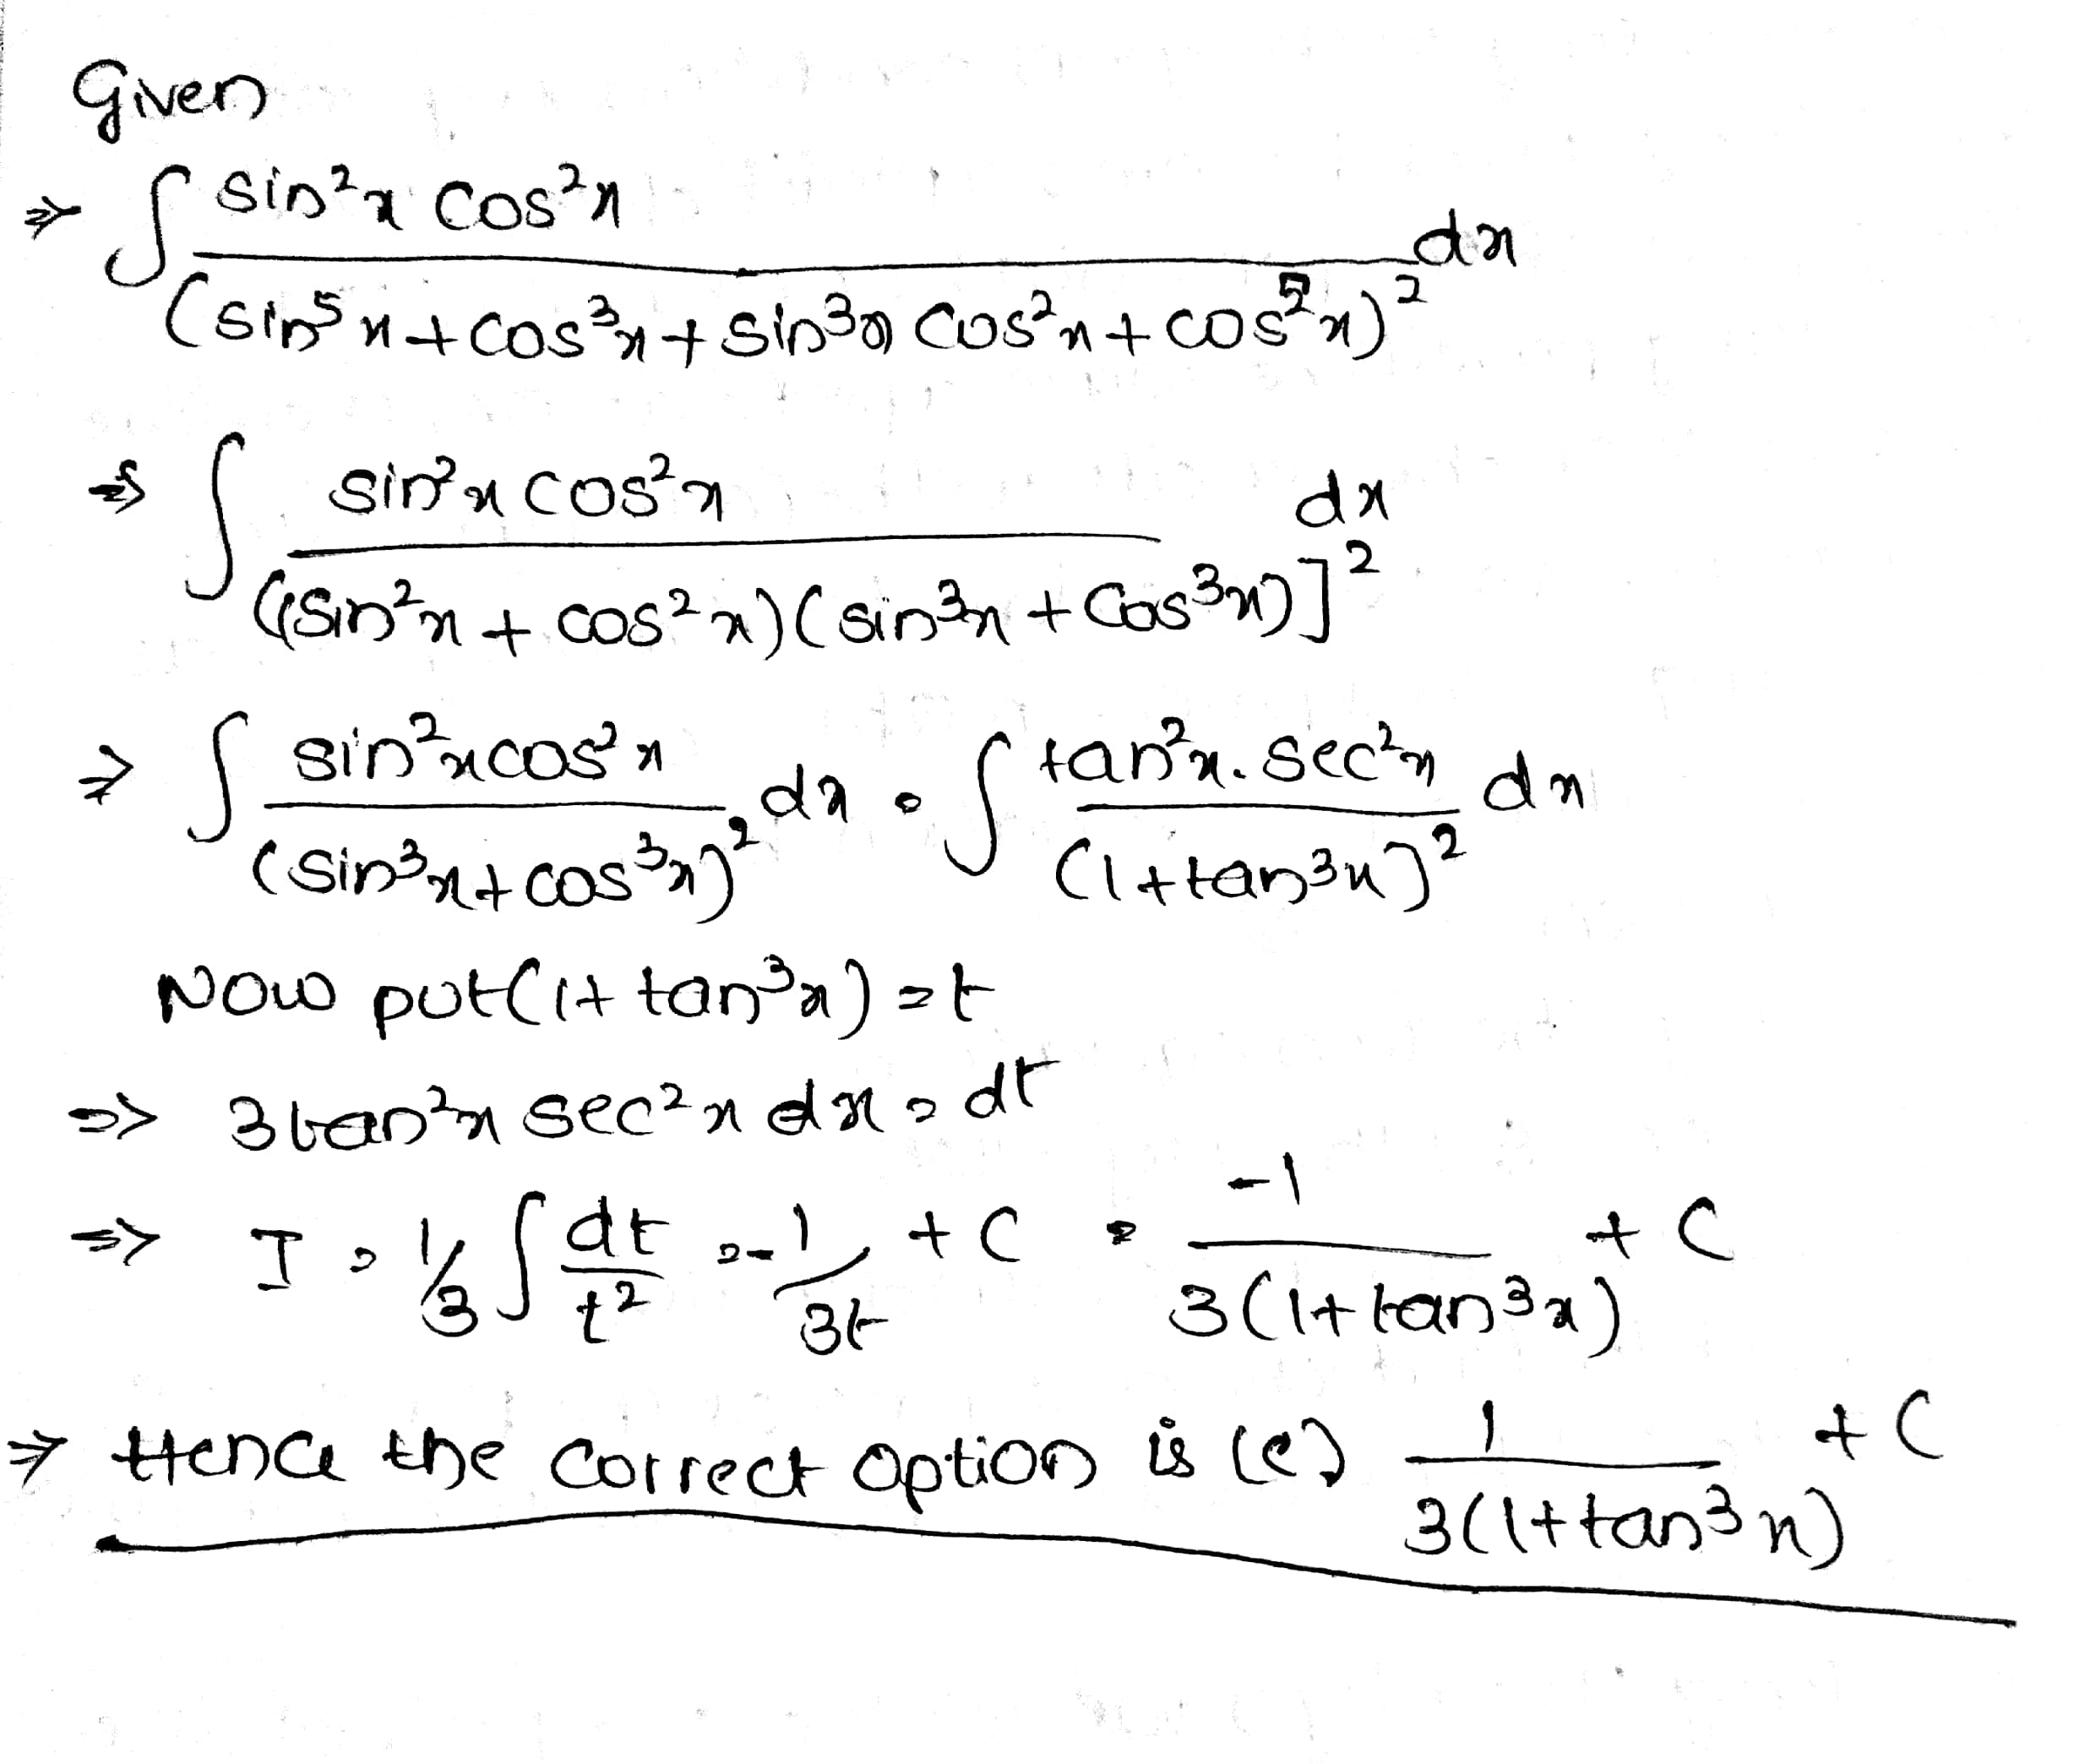 Given
⇒ ∫ sin²x cos²x / (sin⁵x + cos³x + sin³x cos²x + cos⁵x)² dx
⇒ ∫ sin²x cos²x / ((sin²x + cos²x)(sin³x + cos³x)]² dx
⇒ ∫ sin²x cos²x / (sin³x + cos³x)² dx = ∫ tan²x. sec²x / (1+tan³x)² dx
Now put (1+ tan³x) = t
⇒ 3tan²x sec²x dx = dt
⇒ I = 1/3 ∫ dt/t² = -1/3t + C = -1 / 3(1+tan³x) + C
⇒ Hence the correct option is (c) 1 / 3(1+tan³x) + C